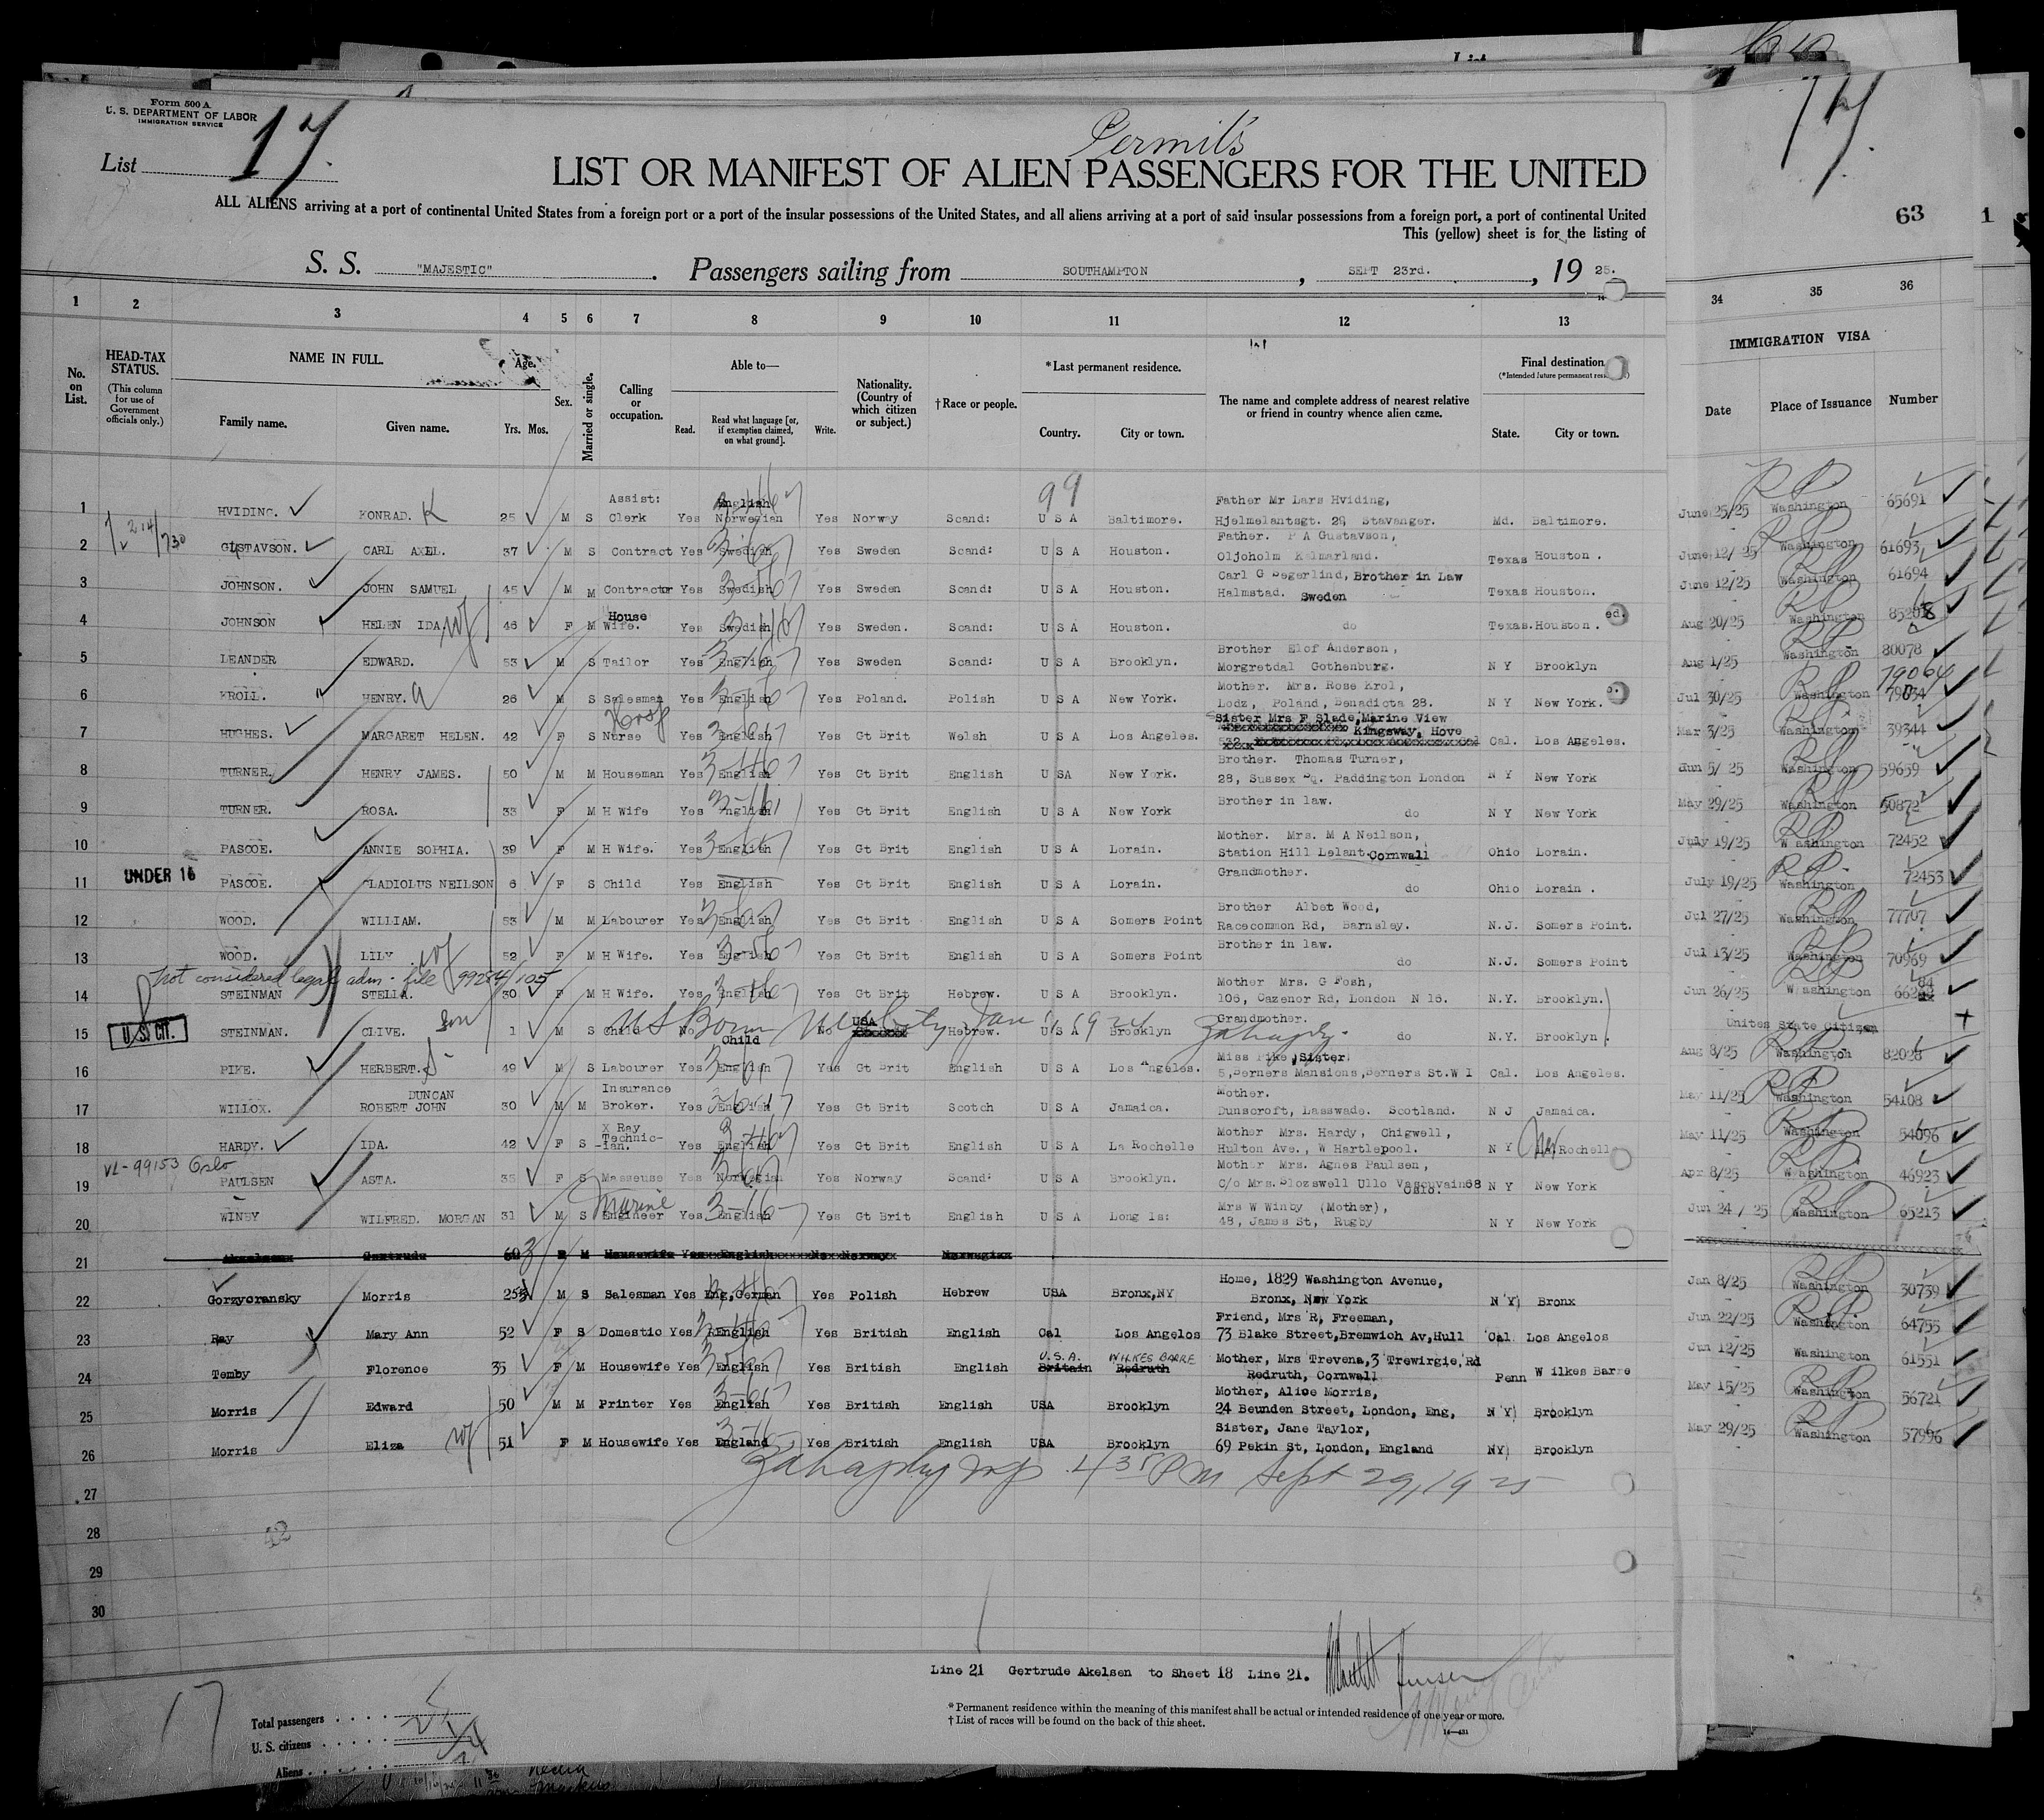 Form 500 A
U. S. DEPARTMENT OF LABOR
IMMIGRATION SERVICE
List 17.
17.
Permits
LIST OR MANIFEST OF ALIEN PASSENGERS FOR THE UNITED
63
ALL ALIENS arriving at a port of continental United States from a foreign port or a port of the insular possessions of the United States, and all aliens arriving at a port of said insular possessions from a foreign port, a port of continental United
This (yellow) sheet is for the listing of
S. S. "MAJESTIC". Passengers sailing from SOUTHAMPTON, SEPT 23rd., 19 25.
1 2 3 4 5 6 7 8 9 10 11 12 13 34 35 36
No. on List.
HEAD-TAX STATUS. (This column for use of Government officials only.)
NAME IN FULL. Family name. Given name.
Age. Yrs. Mos.
Sex.
Married or single.
Calling or occupation.
Able to— Read. Read what language [or, if exemption claimed, on what ground]. Write.
Nationality. (Country of which citizen or subject.)
†Race or people.
*Last permanent residence. Country. City or town.
The name and complete address of nearest relative or friend in country whence alien came.
Final destination. State. City or town.
IMMIGRATION VISA Date Place of Issuance Number
99
1 HVIDING. KONRAD. K 25 M S Assist: Clerk Yes English Norwegian Yes Norway Scand: U S A Baltimore. Father Mr Lars Hviding, Hjelmelantsgt. 29 Stavanger. Md. Baltimore. June 25/25 Washington 65691
2 GUSTAVSON. CARL AXEL. 37 M S Contract Yes Swedish Yes Sweden Scand: U S A Houston. Father. P A Gustavson, Oljoholm Kalmarland. Texas Houston. June 12/25 Washington 61693
3 JOHNSON. JOHN SAMUEL 45 M M Contractor Yes Swedish Yes Sweden Scand: U S A Houston. Carl G Segerlind, Brother in Law Halmstad. Sweden Texas Houston. June 12/25 Washington 61694
4 JOHNSON HELEN IDA wf 46 F M House Wife. Yes Swedish Yes Sweden. Scand: U S A Houston. do Texas. Houston. Aug 20/25 Washington
5 LEANDER EDWARD. 53 M S Tailor Yes English Yes Sweden Scand: U S A Brooklyn. Brother Elof Anderson, Morgretdal Gothenburg. N Y Brooklyn Aug 1/25 Washington 80078
6 KROLL. HENRY. a 26 M S Salesman Yes English Yes Poland. Polish U S A New York. Mother. Mrs. Rose Krol, Lodz, Poland, Benadicta 28. N Y New York. Jul 30/25 Washington 79064
7 HUGHES. MARGARET HELEN. 42 F S Hosp Nurse Yes English Yes Gt Brit Welsh U S A Los Angeles. Sister Mrs F Slade, Marine View Kingsway, Hove Cal. Los Angeles. Mar 3/25 Washington 39344
8 TURNER. HENRY JAMES. 50 M M Houseman Yes English Yes Gt Brit English U SA New York. Brother. Thomas Turner, 28, Sussex Sq. Paddington London N Y New York Jun 5/25 Washington 59659
9 TURNER. ROSA. 33 F M H Wife Yes English Yes Gt Brit English U S A New York Brother in law. do N Y New York May 29/25 Washington 50872
10 PASCOE. ANNIE SOPHIA. 39 F M H Wife. Yes English Yes Gt Brit English U S A Lorain. Mother. Mrs. M A Neilson, Station Hill Lelant. Cornwall Ohio Lorain. July 19/25 Washington 72452
11 UNDER 16 PASCOE. GLADIOLUS NEILSON 6 F S Child Yes English Yes Gt Brit English U S A Lorain. Grandmother. do Ohio Lorain. July 19/25 Washington 72453
12 WOOD. WILLIAM. 53 M M Labourer Yes English Yes Gt Brit English U S A Somers Point Brother Albet Wood, Racecommon Rd, Barnsley. N.J. Somers Point. Jul 27/25 Washington 77707
13 WOOD. LILY. wf 52 F M H Wife. Yes English Yes Gt Brit English U S A Somers Point Brother in law. do N.J. Somers Point Jul 13/25 Washington 70969
Not considered legal adm. file 99284/105
14 STEINMAN STELLA. 30 F M H Wife. Yes English Yes Gt Brit Hebrew. U S A Brooklyn. Mother Mrs. G Fosh, 106, Cazenor Rd, London N 16. N.Y. Brooklyn. Jun 26/25 Washington
15 U.S. CIT. STEINMAN. CLIVE. son 1 M S Child No Child No USA Hebrew. U S A Brooklyn Grandmother. do N.Y. Brooklyn. Unites State Citizen
US Born NY City Jan 1924
16 PIKE. HERBERT. S 49 M S Labourer Yes English Yes Gt Brit English U S A Los Angeles. Miss Pike, Sister 5, Berners Mansions, Berners St. W 1 Cal. Los Angeles. Aug 8/25 Washington 82028
17 WILLOX. ROBERT JOHN DUNCAN 30 M M Insurance Broker. Yes English Yes Gt Brit Scotch U S A Jamaica. Mother. Dunscroft, Lasswade. Scotland. N J Jamaica. May 11/25 Washington 54108
18 HARDY. IDA. 42 F S X Ray Technic-ian. Yes English Yes Gt Brit English U S A La Rochelle Mother Mrs. Hardy, Chigwell, Hulton Ave., W Hartlepool. N Y New Rochell May 11/25 Washington 54096
VL-99153 Oslo
19 PAULSEN ASTA. 35 F S Masseuse Yes Norwegian Yes Norway Scand: U S A Brooklyn. Mother Mrs. Agnes Paulsen, C/o Mrs. Slozswell Ullo Vasouvain 68 Oslo. N Y New York Apr 8/25 Washington 46923
20 WINBY WILFRED. MORGAN 31 M S Marine Engineer Yes English Yes Gt Brit English U S A Long Is: Mrs W Winby (Mother), 48, James St, Rugby N Y New York Jun 24/25 Washington 65213
21 Akselsen Gertrude 60 F M Housewife Yes English No Norway Norwegian
22 Gorzycransky Morris 25 M S Salesman Yes Eng, German Yes Polish Hebrew USA Bronx, NY Home, 1829 Washington Avenue, Bronx, New York N Y Bronx Jan 8/25 Washington 30739
23 Ray Mary Ann 52 F S Domestic Yes English Yes British English Cal Los Angelos Friend, Mrs R, Freeman, 73 Blake Street, Bremwich Av, Hull Cal Los Angelos Jun 22/25 Washington 64755
24 Temby Florence 35 F M Housewife Yes English Yes British English U.S.A. Britain WILKES BARRE Redruth Mother, Mrs Trevena, 3 Trewirgie, Rd Redruth, Cornwall Penn Wilkes Barre Jun 12/25 Washington 61551
25 Morris Edward 50 M M Printer Yes English Yes British English USA Brooklyn Mother, Alice Morris, 24 Beunden Street, London, Eng, N Y Brooklyn May 15/25 Washington 56721
26 Morris Eliza wf 51 F M Housewife Yes England Yes British English USA Brooklyn Sister, Jane Taylor, 69 Pekin St, London, England NY Brooklyn May 29/25 Washington 57996
27 4 35 PM Sept 29, 1925
28
29
30
Line 21 Gertrude Akelsen to Sheet 18 Line 21.
*Permanent residence within the meaning of this manifest shall be actual or intended residence of one year or more.
†List of races will be found on the back of this sheet.
17
Total passengers
U. S. citizens
Aliens